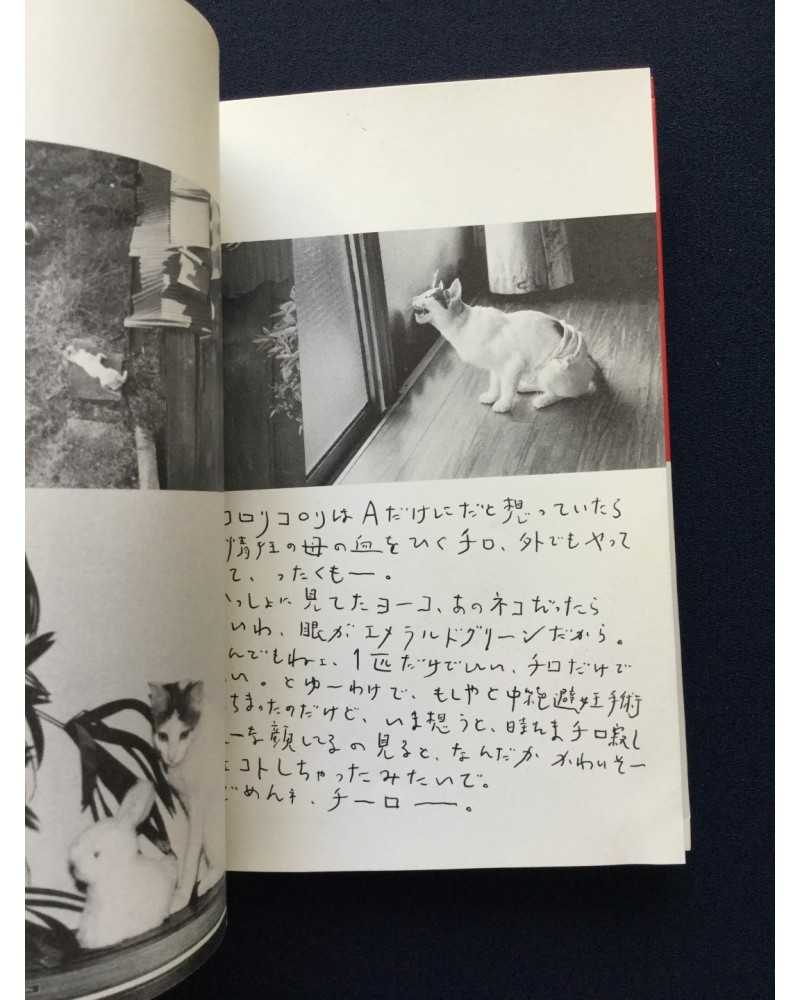 コロリコロリはAだけにだと想っていたら
情狂の母の血をひくチロ、外でもやって
て、ったくもー。
いっしょに見てたヨーコ、あのネコだったら
いいわ、眼がエメラルドグリーンだから。
んでもねェ、1匹だけでいい、チロだけで
い。とゆーわけで、もしやと中絶避妊手術
ちまったのだけど、いま想うと、時たまチロ寂し
ーな顔してるの見ると、なんだかかわいそー
コトしちゃったみたいで。
ごめんネ、チーロー。